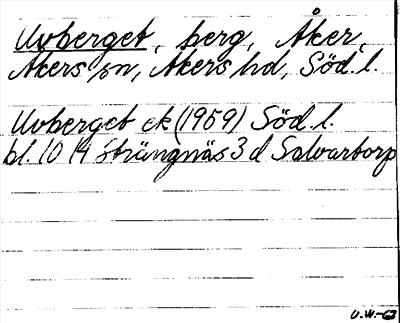 Uvberget, berg, Åker,
Åkers sn, Åkers hd, Söd. l.
Uvberget ek (1959) Söd. l.
bl. 10 H Strängnäs 3 d Solvartorp
U.W.-63